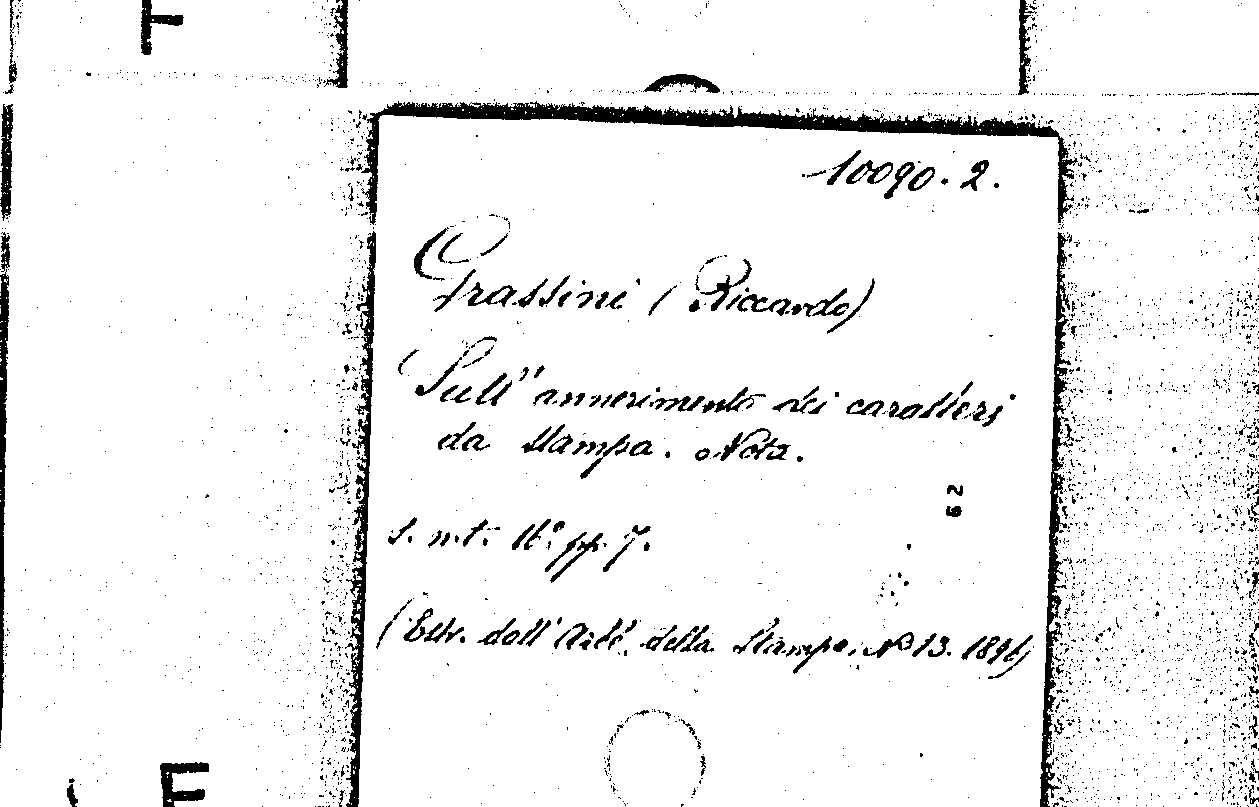 10090.2.
Grassini (Riccardo)
Sull'annerimento dei caratteri
da stampa. Nota.
62
s. n. t. 16° pp. 7.
(Estr. dall'Arte della Stampa. N° 13. 1896)
E